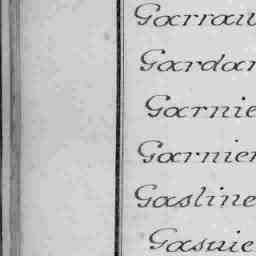 Garrau
Gardar
Garnie
Garnier
Gasline
Gasnie